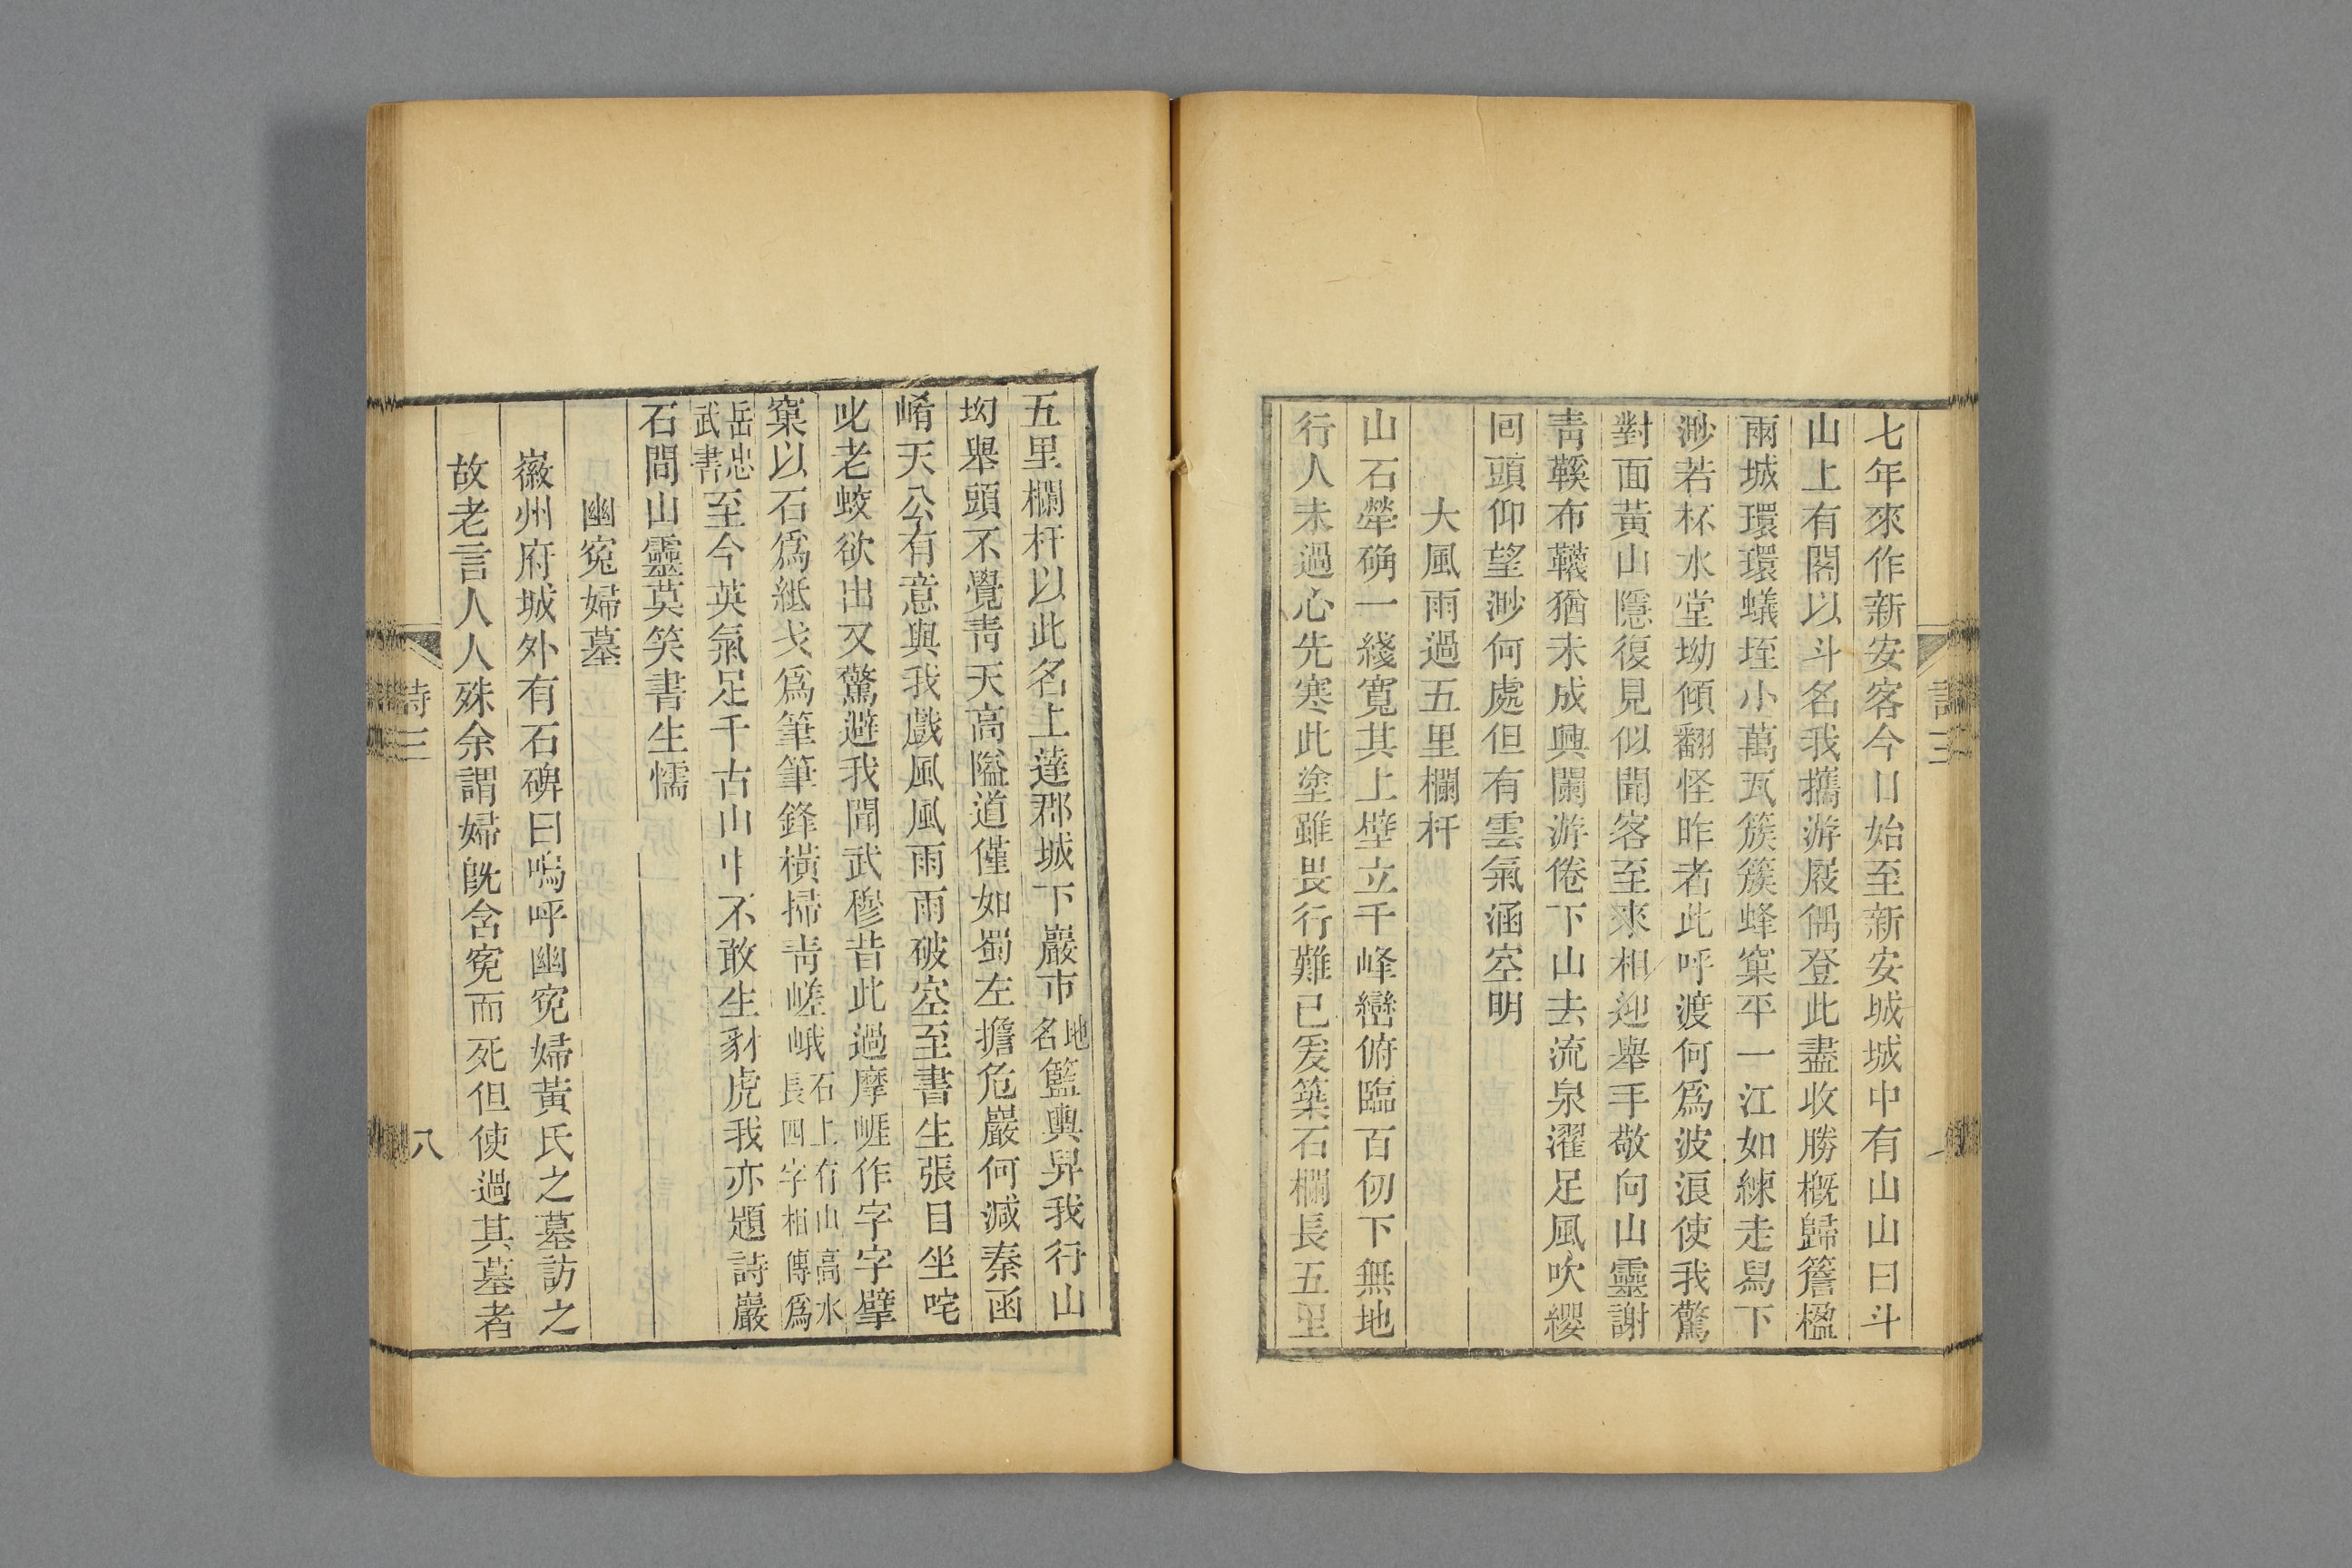 七年來作新安客今日始至新安城城中有山山曰斗
山上有閣以斗名我攜游屐偶登此盡收勝槪歸簷楹
雨城環環蟻垤小萬瓦簇簇蜂窠平一江如練走舄下
渺若杯水堂坳傾翻怪昨者此呼渡何爲波浪使我驚
對面黃山隱復見似聞客至來相迎舉手敬向山靈謝
靑鞵布韈猶未成興闌游倦下山去流泉濯足風吹纓
回頭仰望渺何處但有雲氣涵空明
大風雨過五里欄杆
山石犖确一綫寬其上壁立千峰巒俯臨百仞下無地
行人未過心先寒此塗雖畏行難已爰築石欄長五里
詩三
五里欄杆以此名上達郡城下巖市地名籃輿舁我行山
坳舉頭不覺靑天高隘道僅如蜀左擔危巖何減秦函
崤天公有意與我戲風風雨雨破空至書生張目坐咤
叱老蛟欲出又驚避我聞武穆昔此過摩崕作字字擘
窠以石爲紙戈爲筆筆鋒橫掃靑嵯峨石上有山高水長四字相傳爲
岳忠武書至今英氣足千古山中不敢生豺虎我亦題詩巖
石間山靈莫笑書生懦
幽寃婦墓
徽州府城外有石碑曰嗚呼幽寃婦黃氏之墓訪之
故老言人人殊余謂婦旣含寃而死但使過其墓者
詩三
八